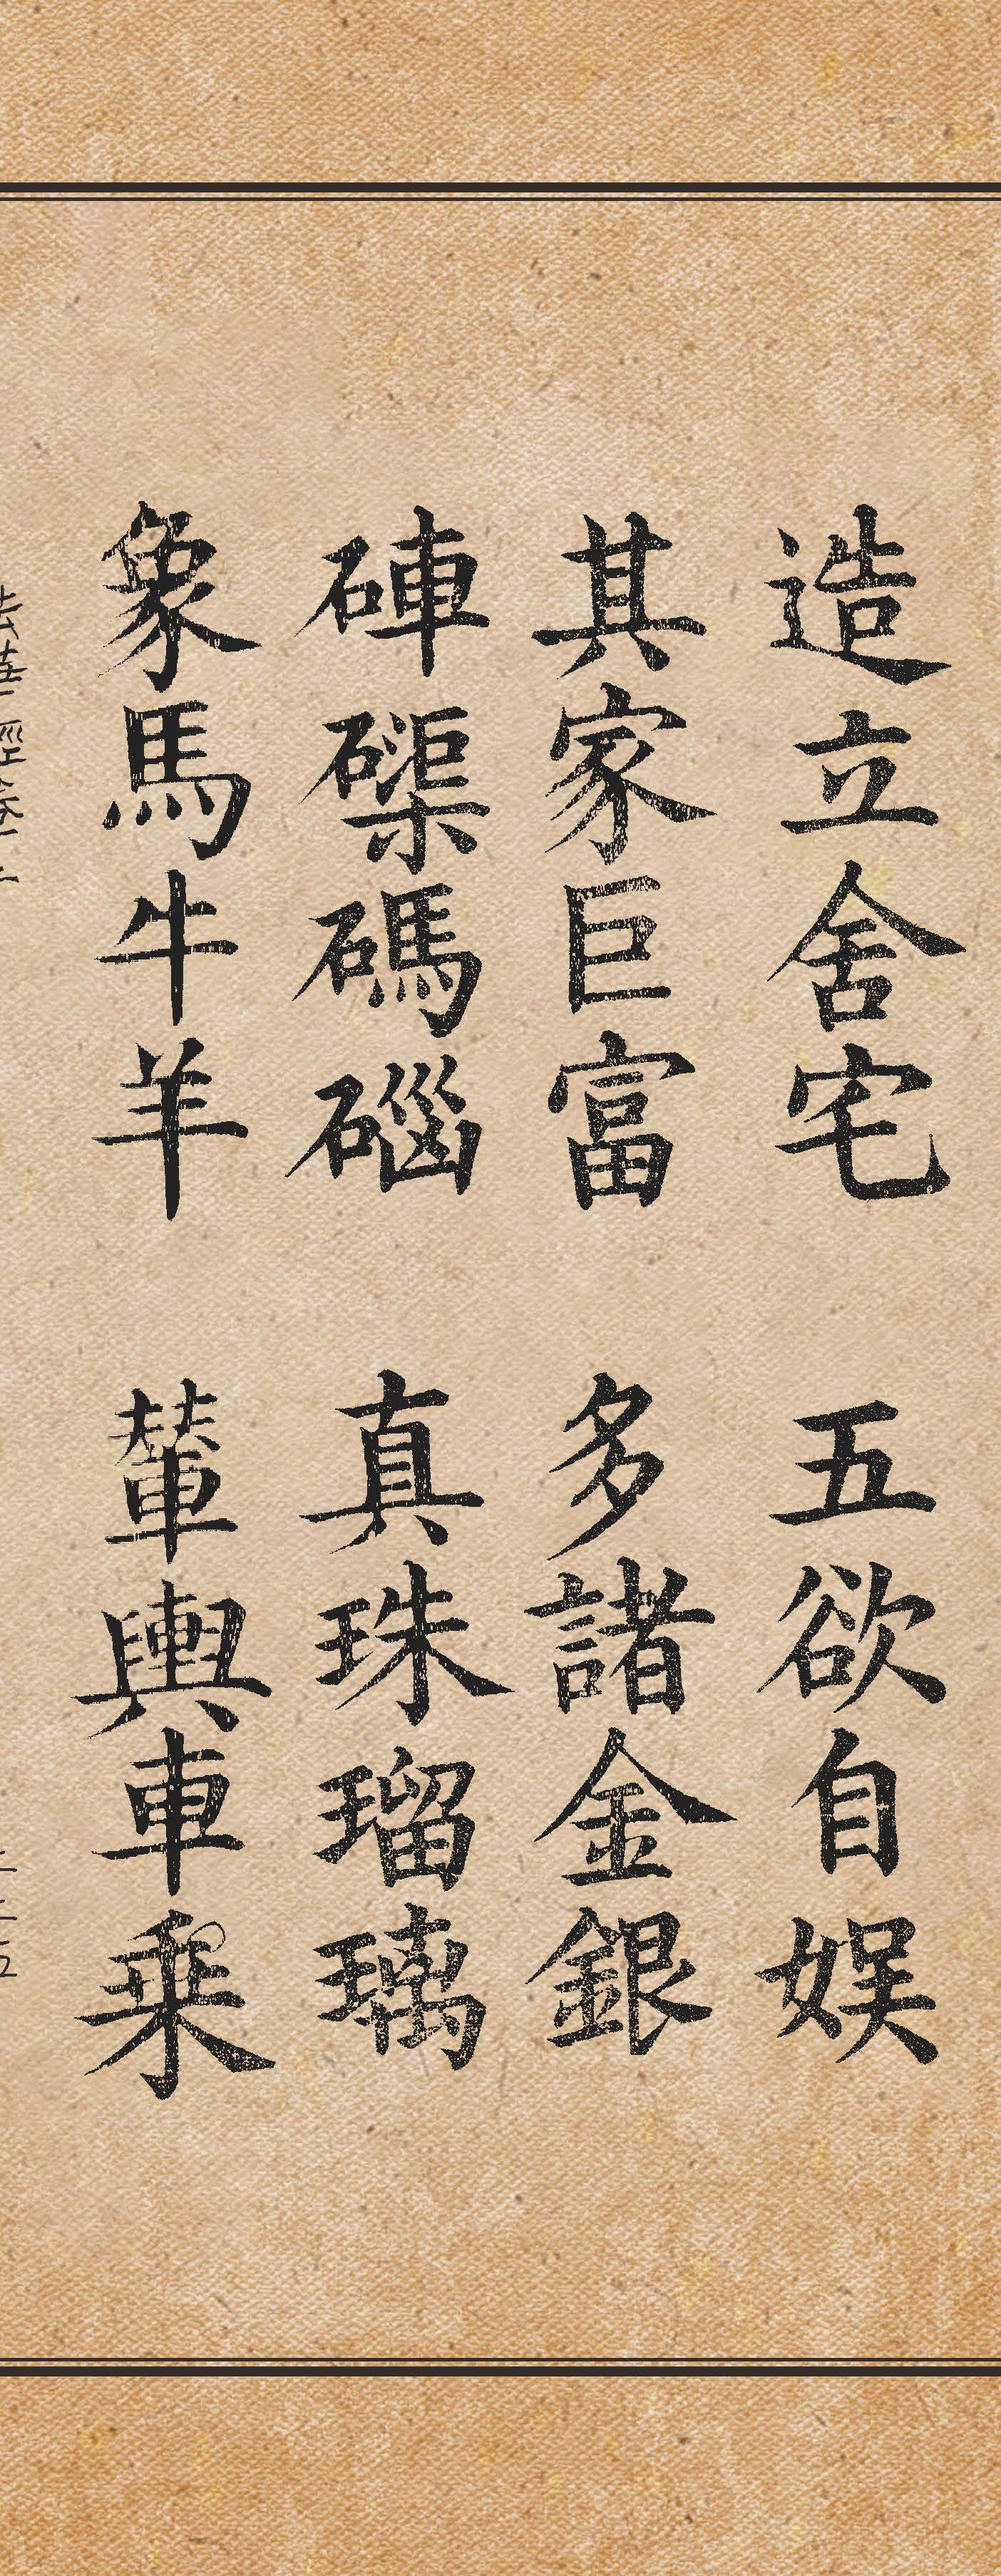 造立舍宅 五欲自娱
其家巨富 多諸金銀
硨磲碼碯 真珠瑠璃
象馬牛羊 輦輿車乘